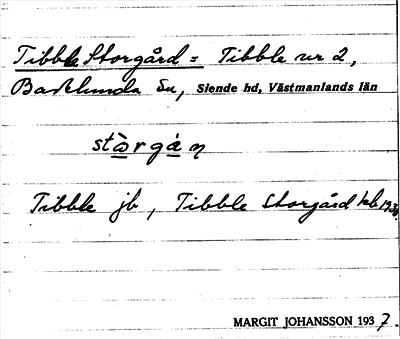 Tibble Storgård = Tibble nr 2,
Barklunda Sn, Siende hd, Västmanlands län
stòrgán
Tibble jb, Tibble Storgård kb 193
MARGIT JOHANSSON 1937.